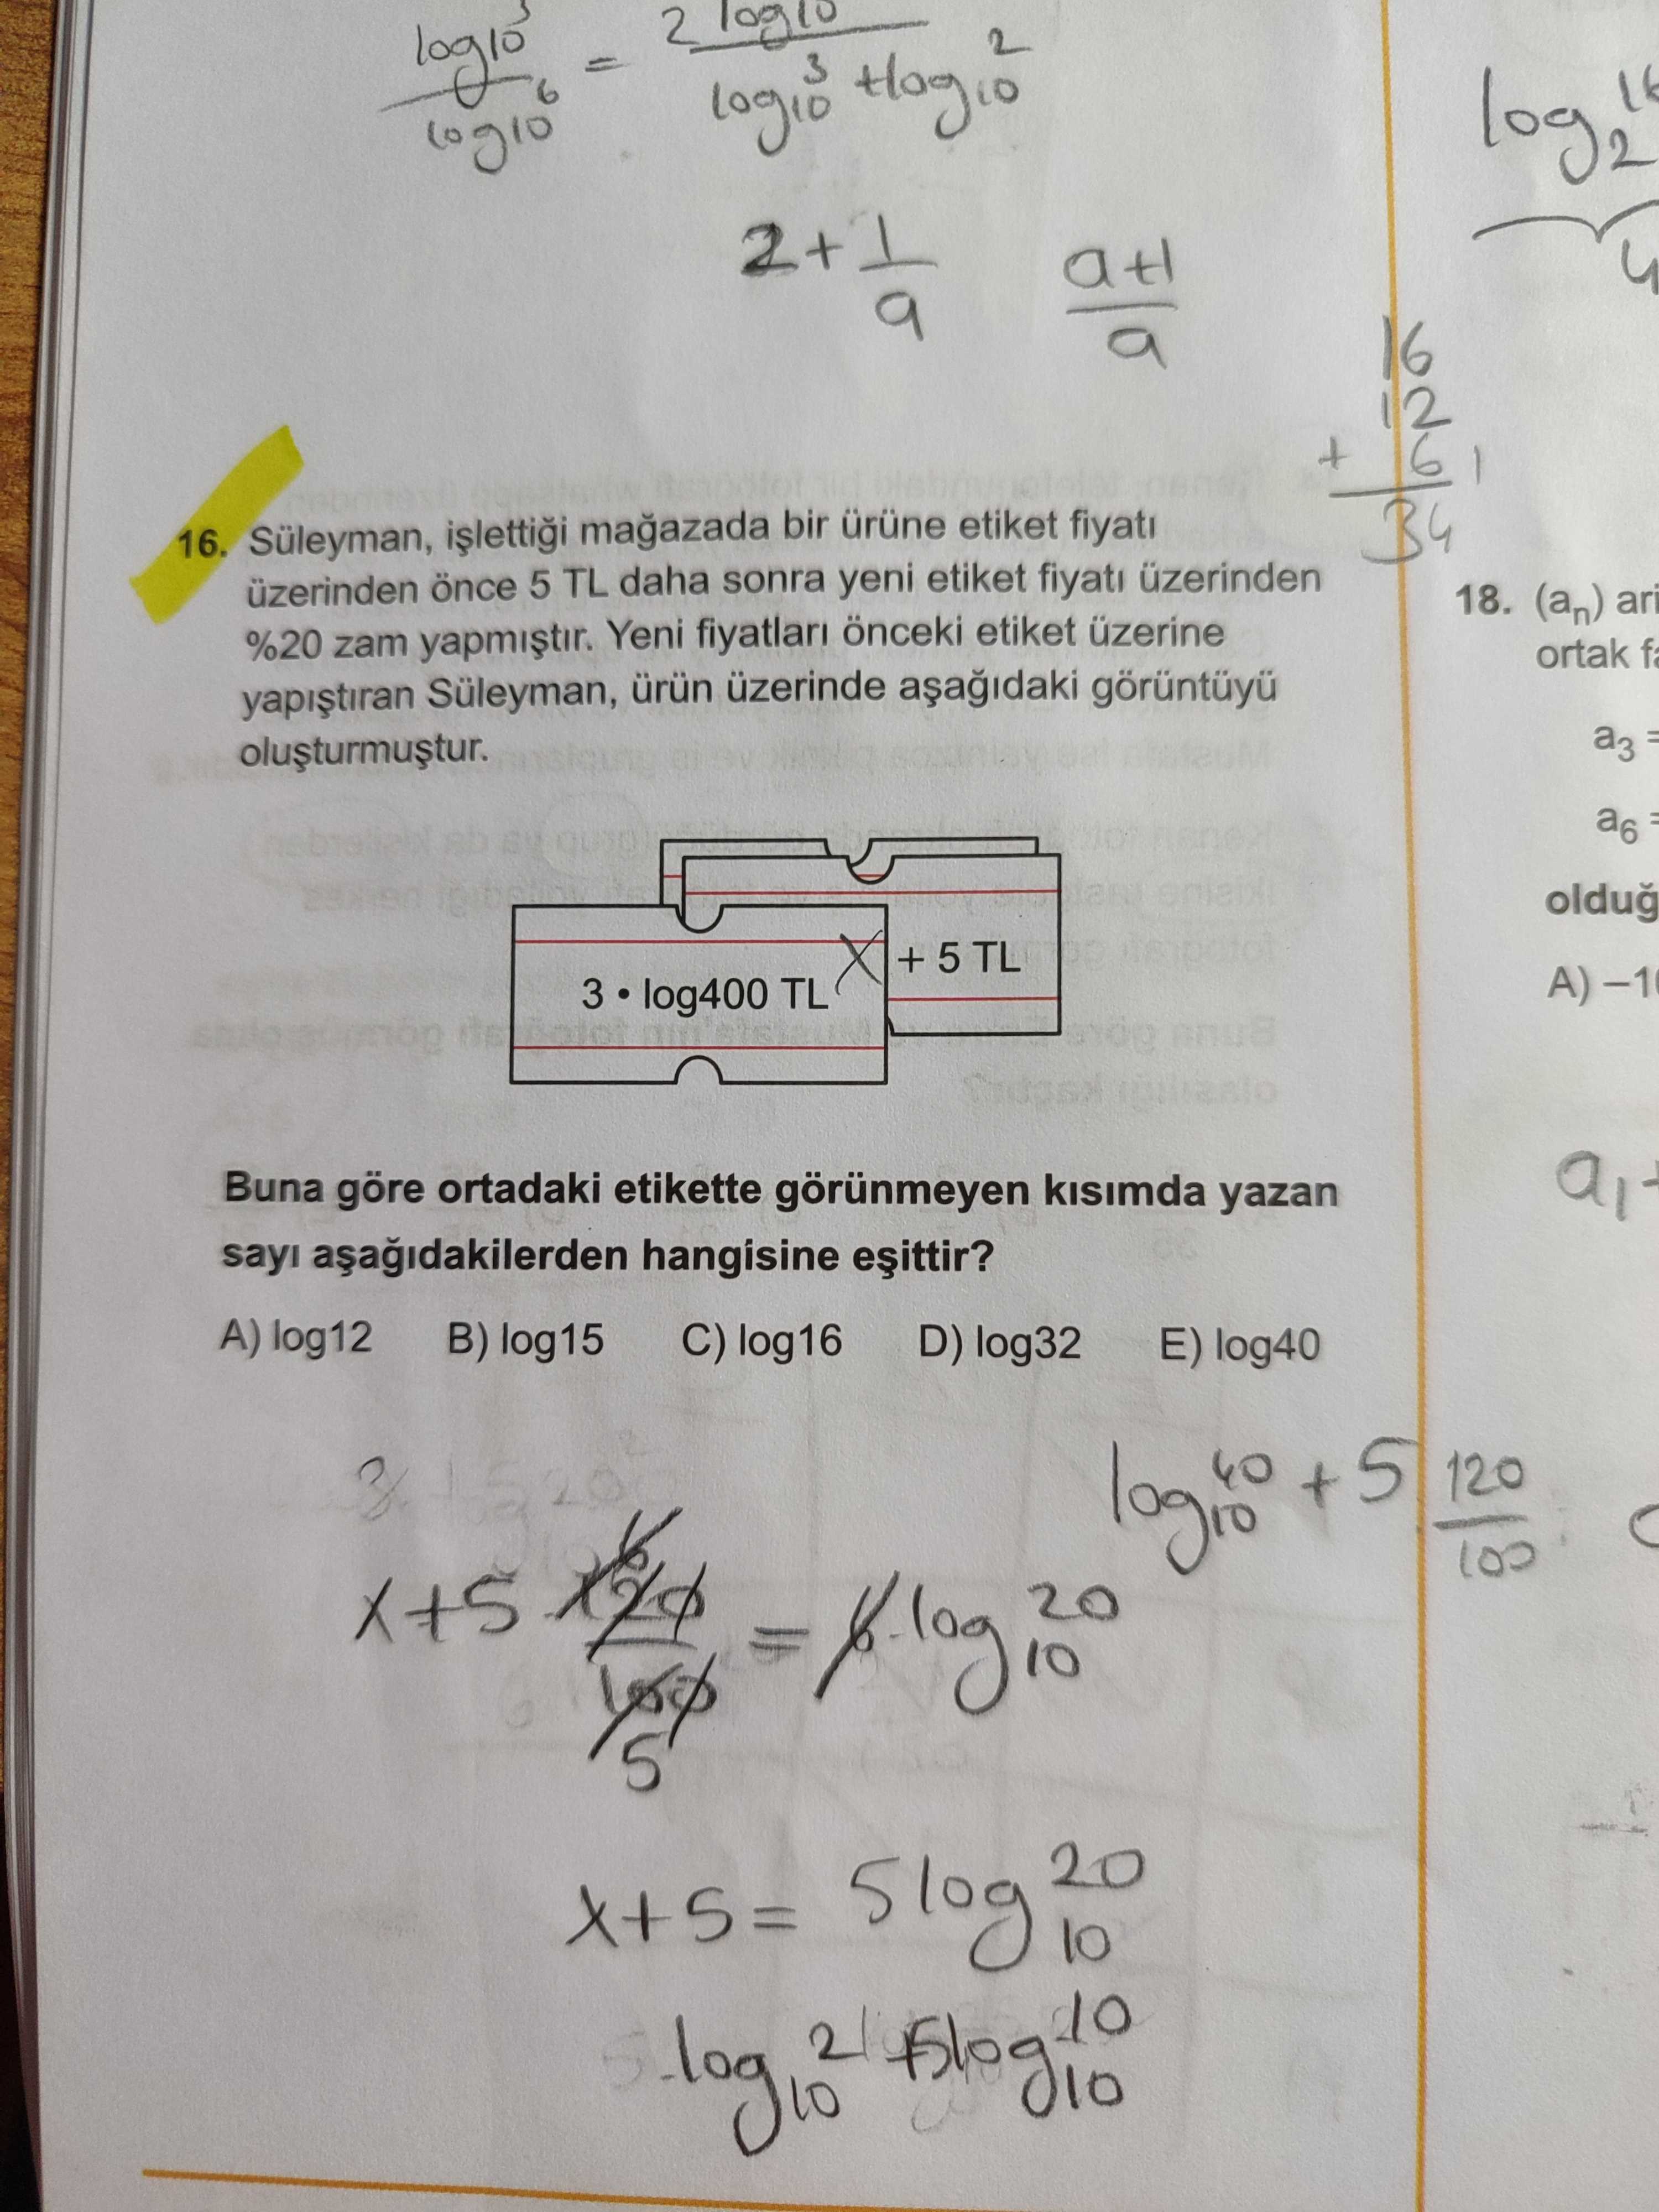 log10³
log10⁶
=
2 log10
log₁₀³ + log₁₀²
log₂16
4
2 + 1/a
a+1/a
16
12
+ 6 1
34
16. Süleyman, işlettiği mağazada bir ürüne etiket fiyatı
üzerinden önce 5 TL daha sonra yeni etiket fiyatı üzerinden
%20 zam yapmıştır. Yeni fiyatları önceki etiket üzerine
yapıştıran Süleyman, ürün üzerinde aşağıdaki görüntüyü
oluşturmuştur.
3 • log400 TL
X
+ 5 TL
Buna göre ortadaki etikette görünmeyen kısımda yazan
sayı aşağıdakilerden hangisine eşittir?
A) log12 B) log15 C) log16 D) log32 E) log40
log₁₀40 + 5
120/100
x+5 · 120/100 = 6·log₁₀20
6
5
x+5 = 5 log₁₀20
5·log₁₀2 + 5log₁₀10
18. (aₙ) ari
ortak fa
a₃ =
a₆ =
olduğ
A) –10
a₁ +